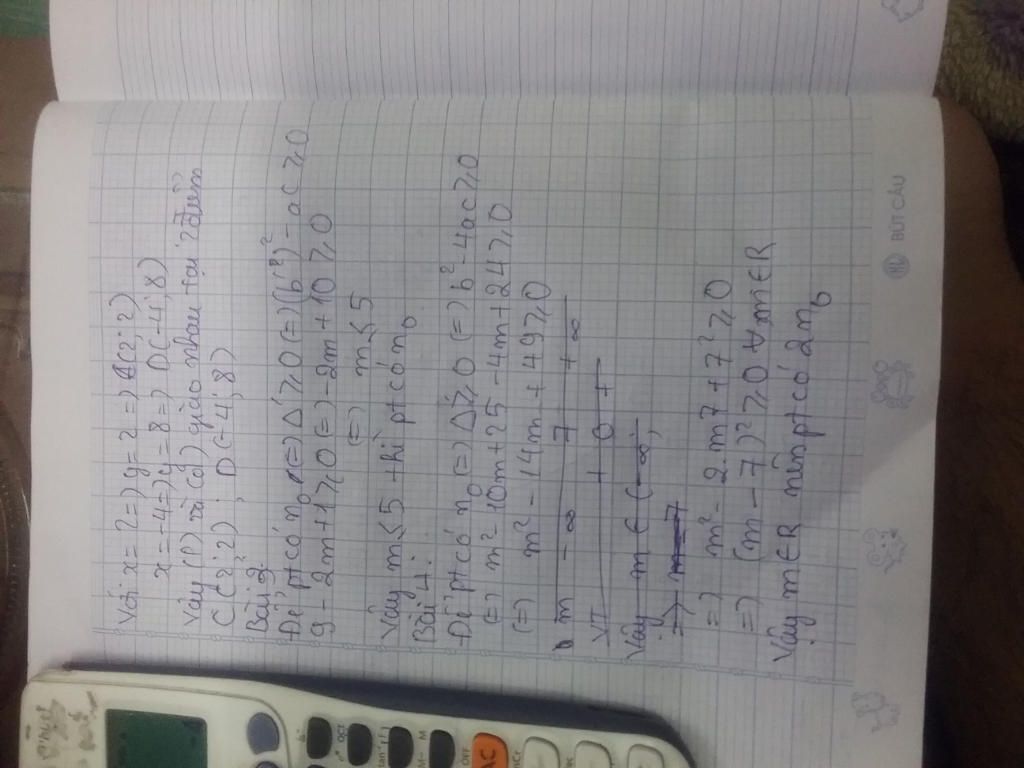 Với x = 2 => y = 2 => C(2; 2)
x = -4 => y = 8 => D(-4; 8)
Vậy (P) và (d) giao nhau tại 2 điểm
C(2; 2); D(-4; 8)
Bài 3:
Để pt có n₀ <=> Δ' ≥ 0 <=> (b'²) - ac ≥ 0
9 - 2m + 1 ≥ 0 <=> -2m + 10 ≥ 0
<=> m ≤ 5
Vậy m ≤ 5 thì pt có n₀
Bài 4:
Để pt có n₀ <=> Δ ≥ 0 <=> b² - 4ac ≥ 0
<=> m² - 10m + 25 - 4m + 24 ≥ 0
<=> m² - 14m + 49 ≥ 0
m -∞ 7 +∞
VT + 0 +
Vậy m ∈ (-∞;
=> m = 7
=> m² - 2m7 + 7² ≥ 0
=> (m - 7)² ≥ 0 ∀ m ∈ R
Vậy m ∈ R nên pt có 2 n₀
BÚT CÂU
OFF
AC
M-
M